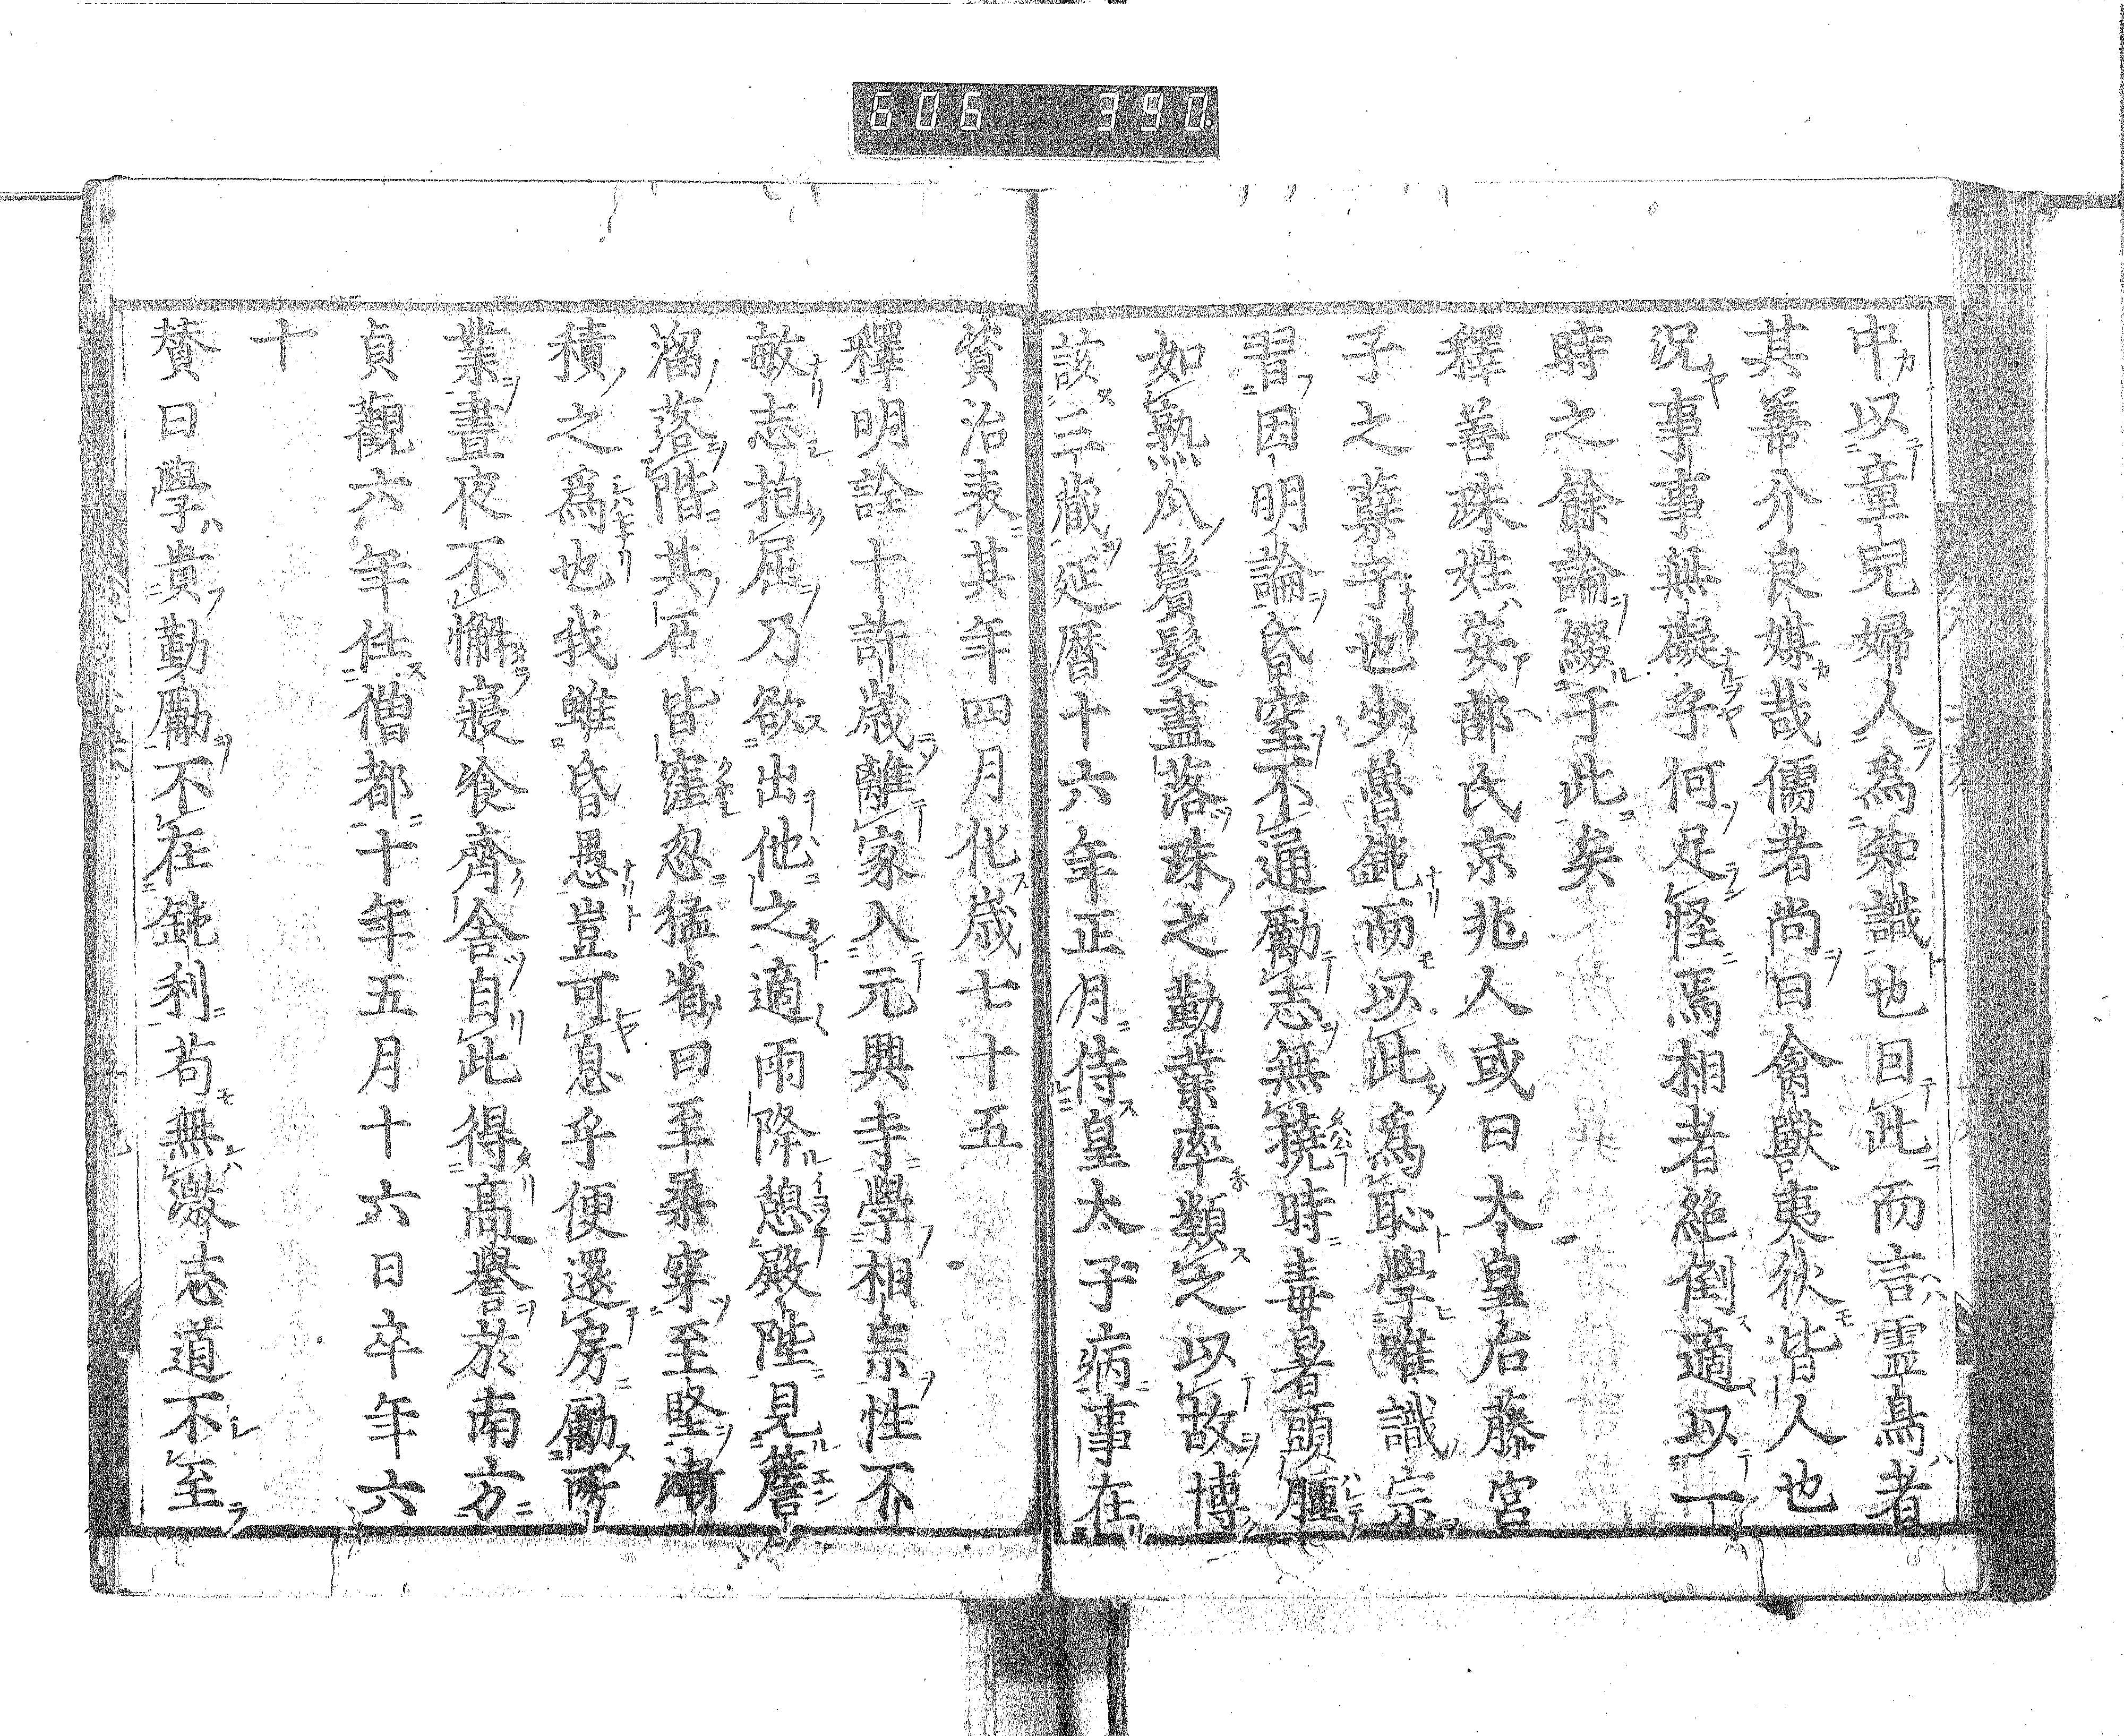 606 390.
中以童兒婦人爲知識也因此而言霊鳥者
其善介良媒哉儒者尚曰禽獸夷狄皆人也
況事事無礙乎何足怪焉相者絶倒適以一
時之餘論綴于此矣
釋善珠姓安部氏京兆人或曰太皇后藤宮
子之孽子也少魯鈍而以此爲恥學唯識宗
習因明論昏窒不通勵志無撓時毒暑頭腫
如熟瓜鬢髮盡落珠之勤業率類之以故博
該三藏延曆十六年正月侍皇太子病事在
資治表其年四月化歳七十五
釋明詮十許歳離家入元興寺學相宗性不
敏志抱屈乃欲出他之適雨降憩殿陛見簷
溜落階其石皆窪忽猛省曰至柔穿至堅漸
積之爲也我雖昏愚豈可息乎便還房勵所
業晝夜不懈寢飡齊舎自此得高譽於南方
貞觀六年任僧都十年五月十六日卒年六
十
賛曰學貴勤勵不在鈍利苟無激志道不至